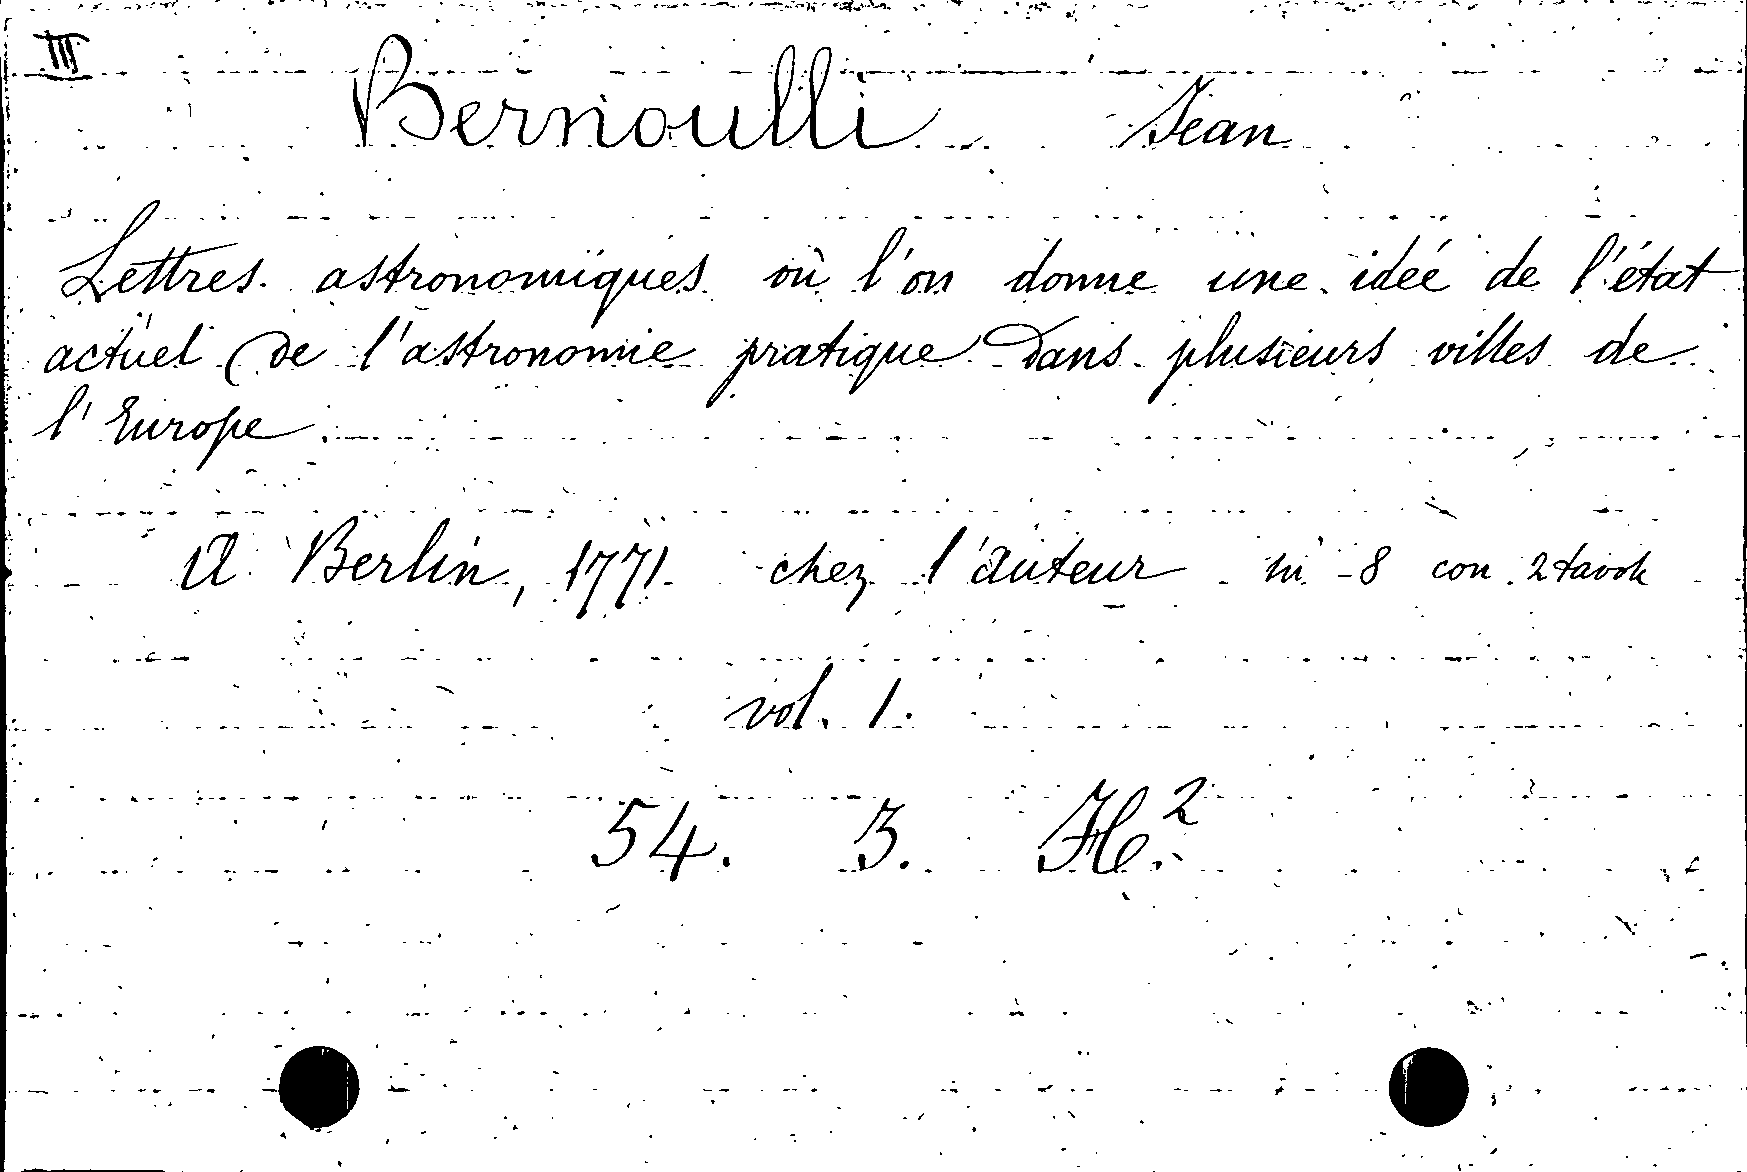 III
Bernoulli Jean
Lettres astronomiques où l'on donne une idée de l'état
actuel de l'astronomie pratique dans plusieurs villes de
l'Europe
A Berlin, 1771 chez l'auteur in-8 con 2 tavole
vol. 1.
54. 3. H.²